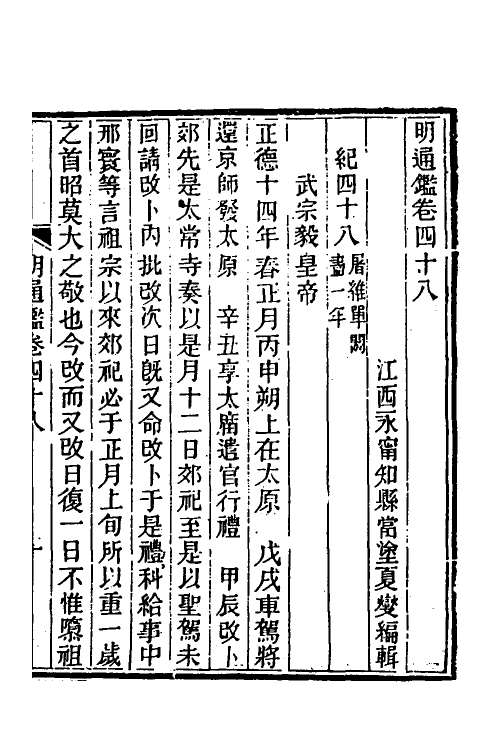 明通鑑卷四十八
江西永甯知縣當塗夏燮編輯
紀四十八屠維單閼
盡一年
武宗毅皇帝
正德十四年春正月丙申朔上在太原　戊戌車駕將
還京師發太原　辛丑享太廟遣官行禮　甲辰改卜
郊先是太常寺奏以是月十二日郊祀至是以聖駕未
回請改卜內批改次日旣又命改卜于是禮科給事中
邢寰等言祖宗以來郊祀必于正月上旬所以重一歲
之首昭莫大之敬也今改而又改日復一日不惟隳祖
明通鑑卷四十八